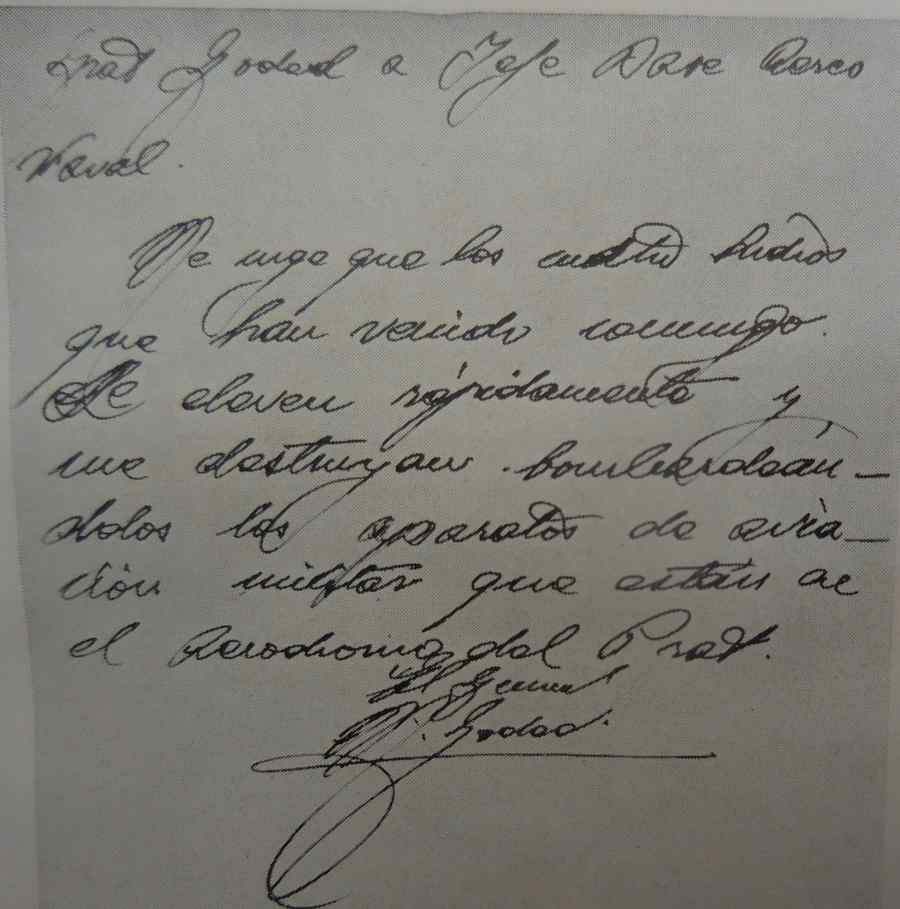 Gral Goded a Jefe Base Aereo
Naval.
Me urge que los cuatro hidros
que han venido conmigo.
Se eleven rápidamente y
me destruyan bombardeán-
dolos los aparatos de avia-
ción militar que están en
el Aerodromo del Prat.
El General
M. Goded.